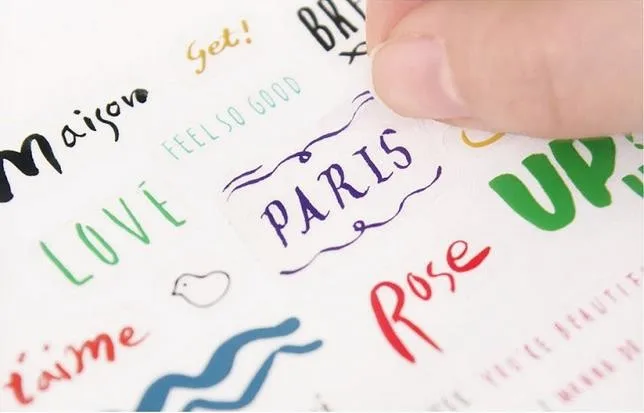 Get!
BRE
Maison
FEEL SO GOOD
PARIS
UP
LOVÉ
Rose
t'aime
YOU'RE BEAUTIF
I WANNA BE